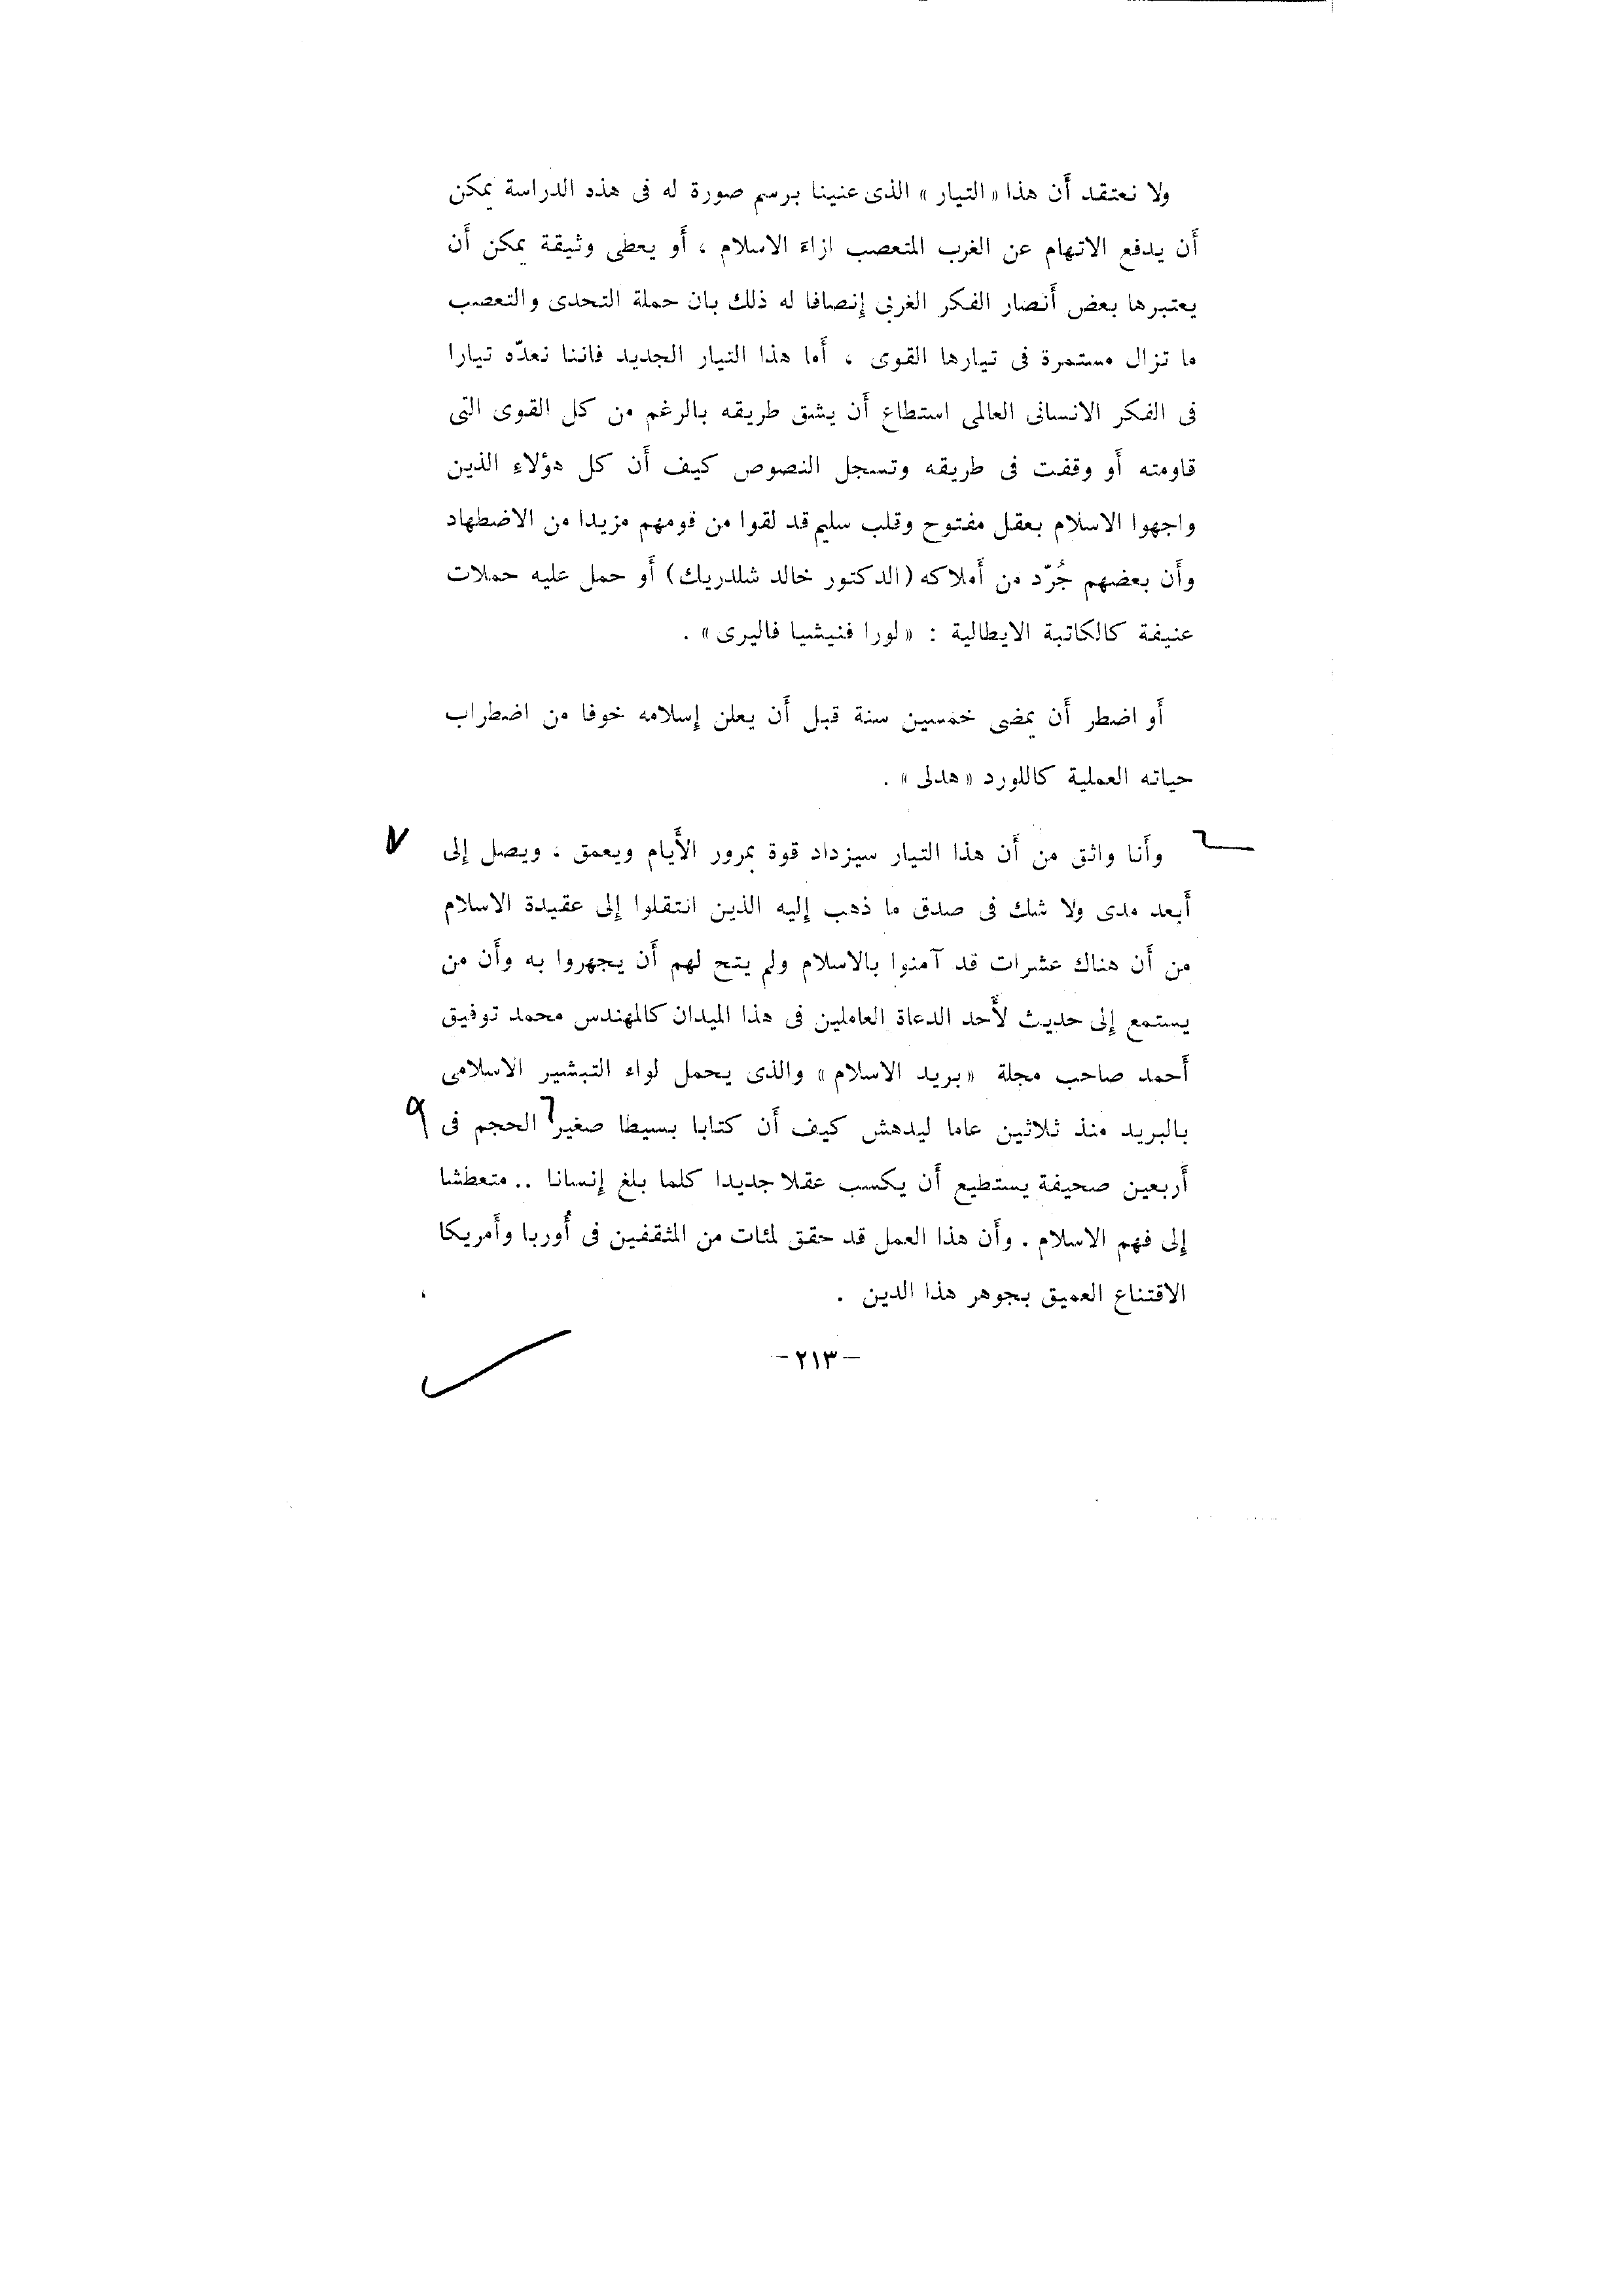 ولا نعتقد أَن هذا «التيار» الذى عنينا برسم صورة له فى هذه الدراسة يمكن
أَن يدفع الاتهام عن الغرب المتعصب ازاءَ الاسلام ، أَو يعطى وثيقة يمكن أَن
يعتبرها بعض أَنصار الفكر الغربى إنصافا له ذلك بان حملة التحدى والتعصب
ما تزال مستمرة فى تيارها القوى ، أَما هذا التيار الجديد فاننا نعدّه تيارا
فى الفكر الانسانى العالمى استطاع أَن يشق طريقه بالرغم من كل القوى التى
قاومته أَو وقفت فى طريقه وتسجل النصوص كيف أَن كل هؤلاءِ الذين
واجهوا الاسلام بعقل مفتوح وقلب سليم قد لقوا من قومهم مزيدا من الاضطهاد
وأَن بعضهم جُرّد من أَملاكه (الدكتور خالد شلدريك) أَو حمل عليه حملات
عنيفة كالكاتبة الايطالية : «لورا فنيشيا فاليرى» .
أَو اضطر أَن يمضى خمسين سنة قبل أَن يعلن إسلامه خوفا من اضطراب
حياته العملية كاللورد «هدلى» .
وأَنا واثق من أَن هذا التيار سيزداد قوة بمرور الأَيام ويعمق ، ويصل إلى
أَبعد مدى ولا شك فى صدق ما ذهب إليه الذين انتقلوا إلى عقيدة الاسلام
من أَن هناك عشرات قد آمنوا بالاسلام ولم يتح لهم أَن يجهروا به وأَن من
يستمع إلى حديث لأَحد الدعاة العاملين فى هذا الميدان كالمهندس محمد توفيق
أَحمد صاحب مجلة «بريد الاسلام» والذى يحمل لواء التبشير الاسلامى
بالبريد منذ ثلاثين عاما ليدهش كيف أَن كتابا بسيطا صغير الحجم فى
أَربعين صحيفة يستطيع أَن يكسب عقلا جديدا كلما بلغ إنسانا .. متعطشا
إلى فهم الاسلام . وأَن هذا العمل قد حقق لمئات من المثقفين فى أُوربا وأَمريكا
الاقتناع العميق بجوهر هذا الدين .
-٢١٣-